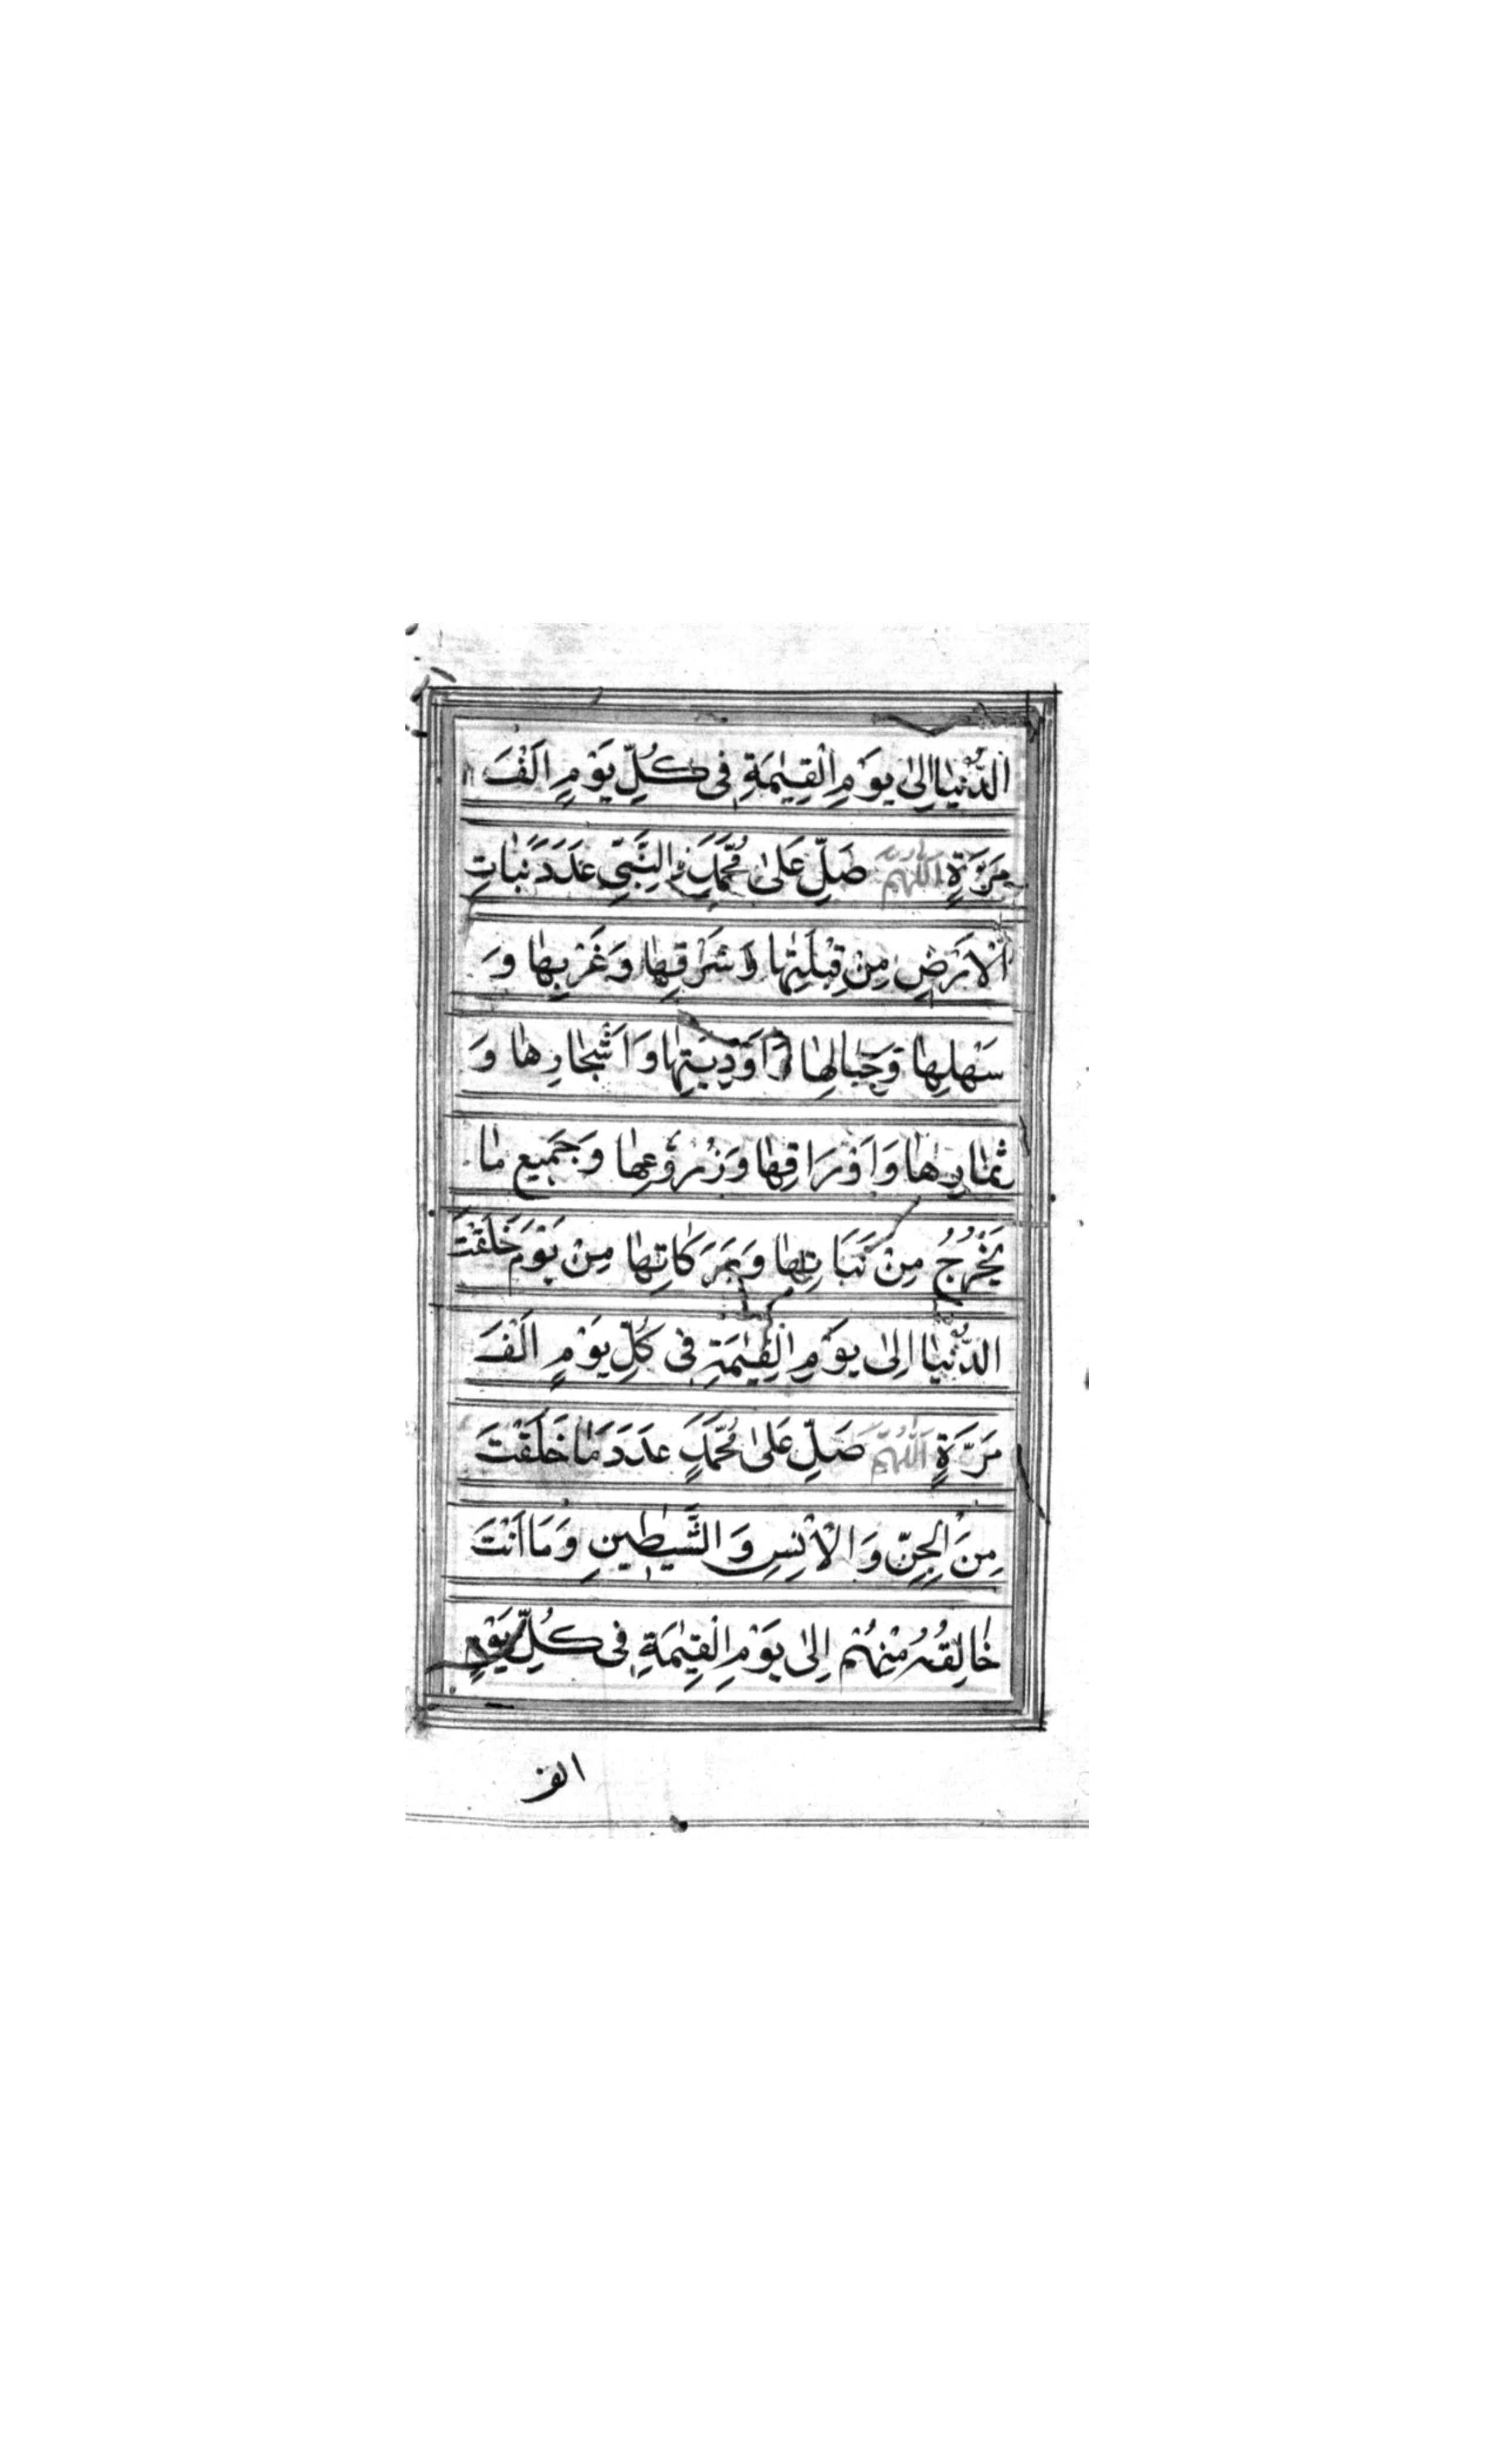 الدُّنْيٰا اِلىٰ يَوْمِ الْقِيٰمَةِ فِى كُلِّ يَوْمٍ اَلْفَ
مَرَّةٍ اَللّٰهُمَّ صَلِّ عَلىٰ مُحَمَّدٍ النَّبِيِّ عَدَدَ نَبٰاتِ
الْاَرْضِ مِنْ قِبْلَتِهٰا وَشَرْقِهٰا وَغَرْبِهٰا وَ
سَهْلِهٰا وَجِبٰالِهٰا وَاَوْدِيَتِهٰا وَاَشْجٰارِهٰا وَ
ثِمٰارِهٰا وَاَوْرَاقِهٰا وَزُرُوْعِهٰا وَجَمِيعِ مٰا
يَخْرُجُ مِنْ نَبَاتِهٰا وَبَرَكَاتِهٰا مِنْ يَوْمَ خَلَقْتَ
الدُّنْيٰا اِلىٰ يَوْمِ الْقِيٰمَةِ فِى كُلِّ يَوْمٍ اَلْفَ
مَرَّةٍ اَللّٰهُمَّ صَلِّ عَلىٰ مُحَمَّدٍ عَدَدَ مٰا خَلَقْتَ
مِنَ الْجِنِّ وَ الْاِنْسِ وَ الشَّيٰطِينِ وَمَا اَنْتَ
خٰالِقُهُ مِنْهُمْ اِلىٰ يَوْمِ الْقِيٰمَةِ فِى كُلِّ يَوْمٍ
الف